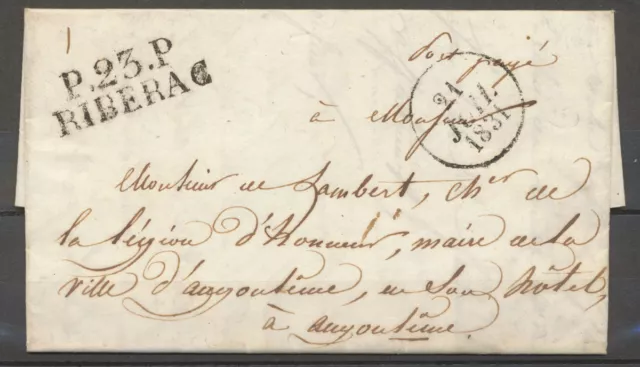 P.23.P
RIBERAC
Port payé
21
JUIL.
1831
à Monsieur
Monsieur de Lambert, chr de
la légion d'honneur, maire de la
ville d'angoulême, en son hôtel,
à angoulême.